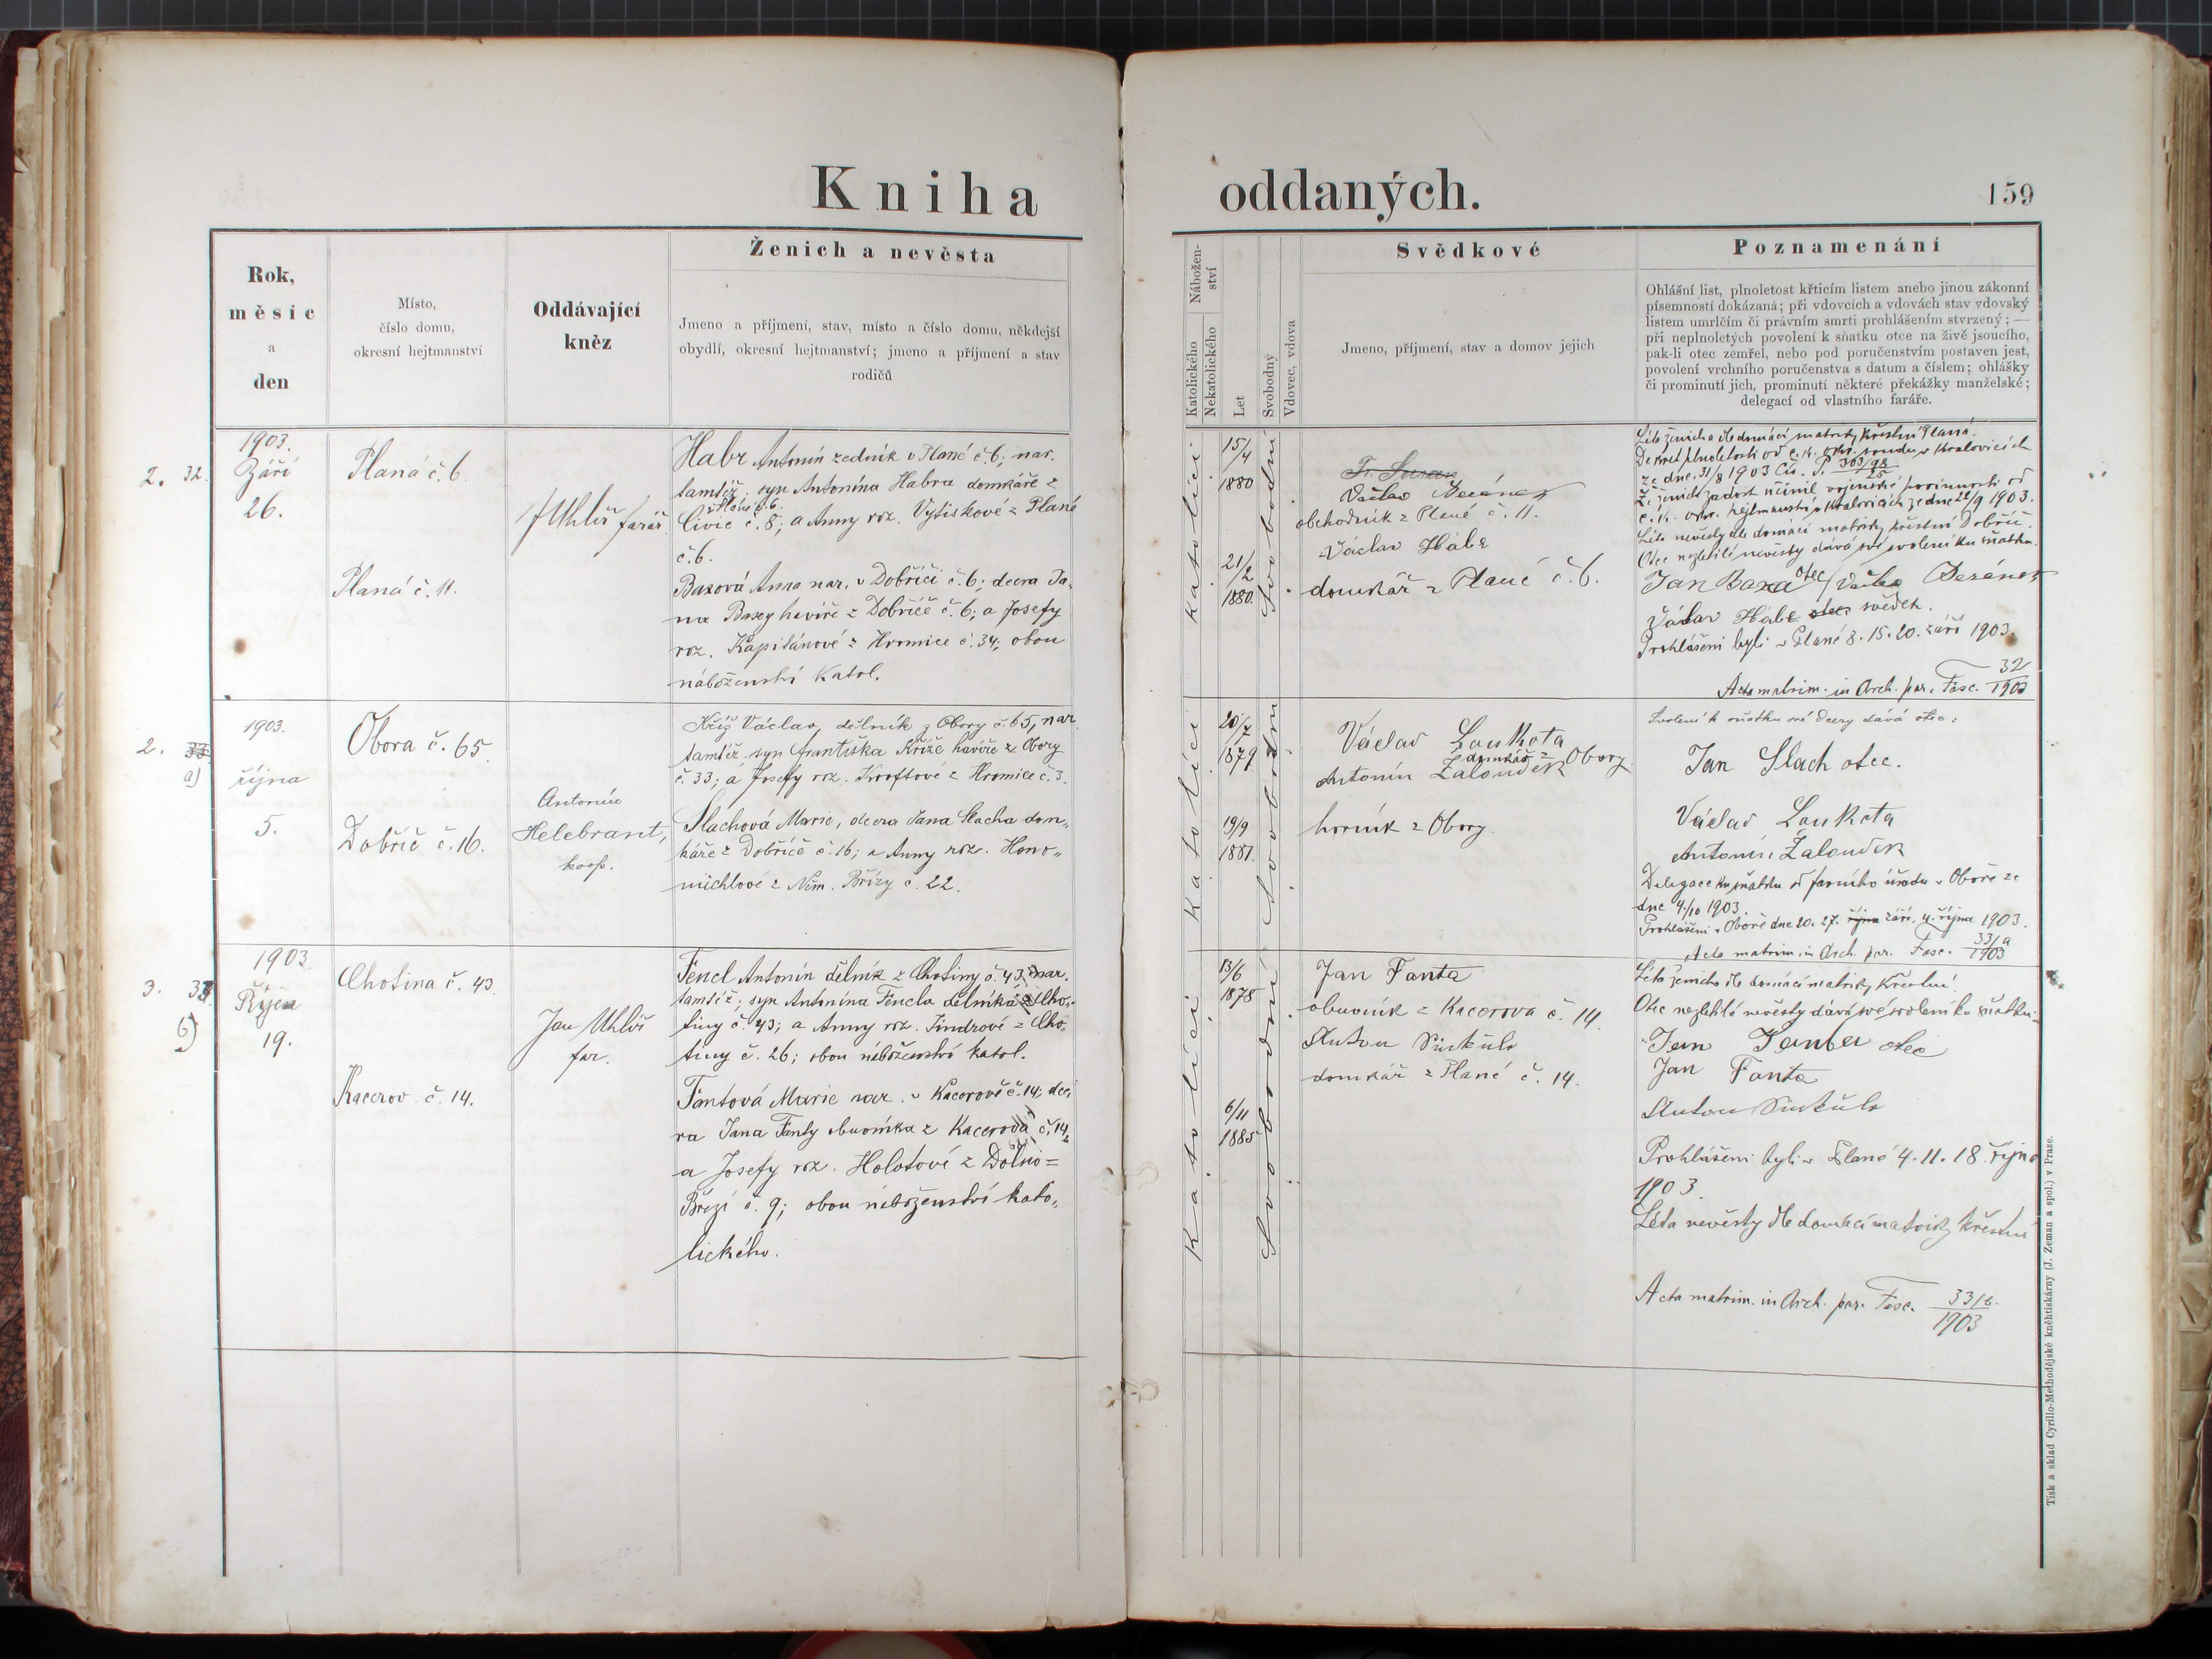 Kniha oddaných.
159
Rok,
měsíc
a
den
Místo,
číslo domu,
okresní hejtmanství
Oddávající
kněz
Ženich a nevěsta
Jmeno a příjmení, stav, místo a číslo domu, někdejší
obydlí, okresní hejtmanství; jmeno a příjmení a stav
rodičů
Nábožen-
ství
Katolického
Nekatolického
Let
Svobodný
Vdovec, vdova
Svědkové
Jmeno, příjmení, stav a domov jejich
Poznamenání
Ohlášní list, plnoletost křticím listem anebo jinou zákonní
písemností dokázaná; při vdovcích a vdovách stav vdovský
listem umrlčím či právním smrti prohlášením stvrzený; —
při neplnoletých povolení k sňatku otce na živě jsoucího,
pak-li otec zemřel, nebo pod poručenstvím postaven jest,
povolení vrchního poručenstva s datum a číslem; ohlášky
či prominutí jich, prominutí některé překážky manželské;
delegací od vlastního faráře.
2. 32.
1903.
Září
26.
Planá č. 6.
Planá č. 11.
J Uhlíř farář
Habr Antonín zedník v Plané č. 6; nar.
tamtéž; syn Antonína Habra domkáře z
Plané č. 6.
Civic č. 8; a Anny roz. Vytiskové z Plané
č. 6.
Baxová Anna nar. v Dobříči č. 6; dcera Ja-
na Baxy havíře z Dobříče č. 6; a Josefy
roz. Kapitánové z Hromice č. 34; obou
náboženství katol.
katolíci
15/4
1880
21/2
1880.
svobodní
Václav
obchodník z Plané č. 11.
Václav Habr
domkář z Plané č. 6.
Léta ženicha dle domácí matriky křestní Planá.
Dekret plnoletosti od c. k. okr. soudu v Kralovicích
ze dne 31/8 1903 Čís. P. 363/98
25
Že ženich zadost učinil vojenské povinnosti od
c. k. okr. hejtmanství v Kralovicích ze dne 22/9 1903.
Léta nevěsty dle domácí matriky křestní Dobříč.
Otec nezletilé nevěsty dává své svolení ku sňatku.
Jan Baxa otec
Václav Habr otec svědek.
Prohlášeni byli v Plané 8. 15. 20. září 1903.
Acta matrim. in Arch. par. Fasc. 32
1903
2. 33
a)
1903.
října
5.
Obora č. 65.
Dobříč č. 16.
Antonín
Helebrant,
koop.
Kříž Václav, dělník z Obory č. 65, nar.
tamtéž, syn Františka Kříže havíře z Obory
č. 33; a Josefy roz. Kroftové z Hromice č. 3.
Slachová Marie, dcera Jana Slacha dom-
káře z Dobříče č. 16; a Anny roz. Hono-
michlové z Něm. Břízy č. 22.
Katolíci
20/7
1879.
19/9
1881.
svobodní
Václav Loukota
domkář z Obory
Antonín Žaloudek
horník z Obory.
Svolení k sňatku své dcery dává otec:
Jan Slach otec.
Václav Loukota
Antonín Žaloudek
Delegace ku sňatku od farního úřadu v Oboře ze
dne 4./10 1903.
Prohlášeni v Oboře dne 20. 27. října září, 4. října 1903.
Acta matrim. in Arch. par. Fasc. 33/a
1903
3. 33
b)
1903.
Říjen
19.
Chotina č. 43
Kacerov č. 14.
Jan Uhlíř
far.
Fencl Antonín dělník z Chotiny č. 43; nar.
tamtéž; syn Antonína Fencla dělníka z Cho-
tiny č. 43; a Anny roz. Jindrové z Cho-
tiny č. 26; obou náboženství katol.
Fantová Marie nar. v Kacerově č. 14; dce-
ra Jana Fanty obuvníka z Kacerova č. 14,
a Josefy roz. Holotové z Dolno=
Březí č. 9; obou náboženství kato-
lického.
Katolíci
13/6
1878
6/11
1885
Svobodní
Jan Fanta
obuvník z Kacerova č. 14.
Anton
domkář z Plané č. 14.
Léta ženicha dle domácí matriky křestní.
Otec nezletilé nevěsty dává své svolení ku sňatku:
Jan Fanta otec
Jan Fanta
Anton
Prohlášeni byli v Plané 4. 11. 18. října
1903.
Léta nevěsty dle domácí matriky křestní
Acta matrim. in Arch. par. Fasc. 33/b.
1903
Tisk a sklad Cyrillo-Methodějské kněhtiskárny (J. Zeman a spol.) v Praze.